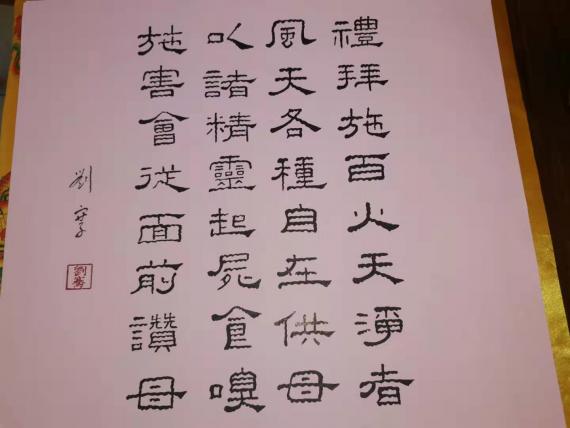 禮拜施百火天淨者
風天各種自在供母
以諸精靈起屍食嗅
施害會從面前讚母
劉